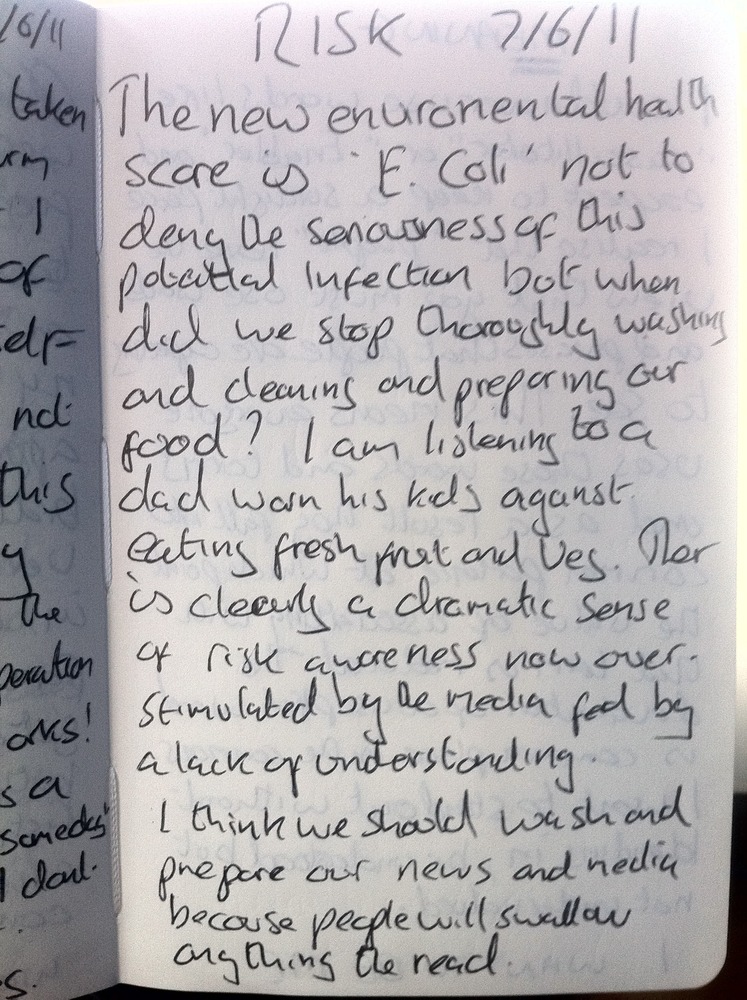 /6/11
taken
rm
I
of
elf
not
this
y
the
peration
orks!
s a
someday
I don't.
s.
RISK 7/6/11
The new enuronental health
scare is 'E. Coli' not to
deny the seriousness of this
potential infection but when
did we stop thoroughly washing
and cleaning and preparing our
food? I am listening to a
dad warn his kids aganst
eating fresh fruit and veg. Ther
is clearly a dramatic sense
of risk awareness now over-
stimulated by the media fed by
a lack of understanding.
I think we should wash and
prepare our news and media
because people will swallow
anything the read.